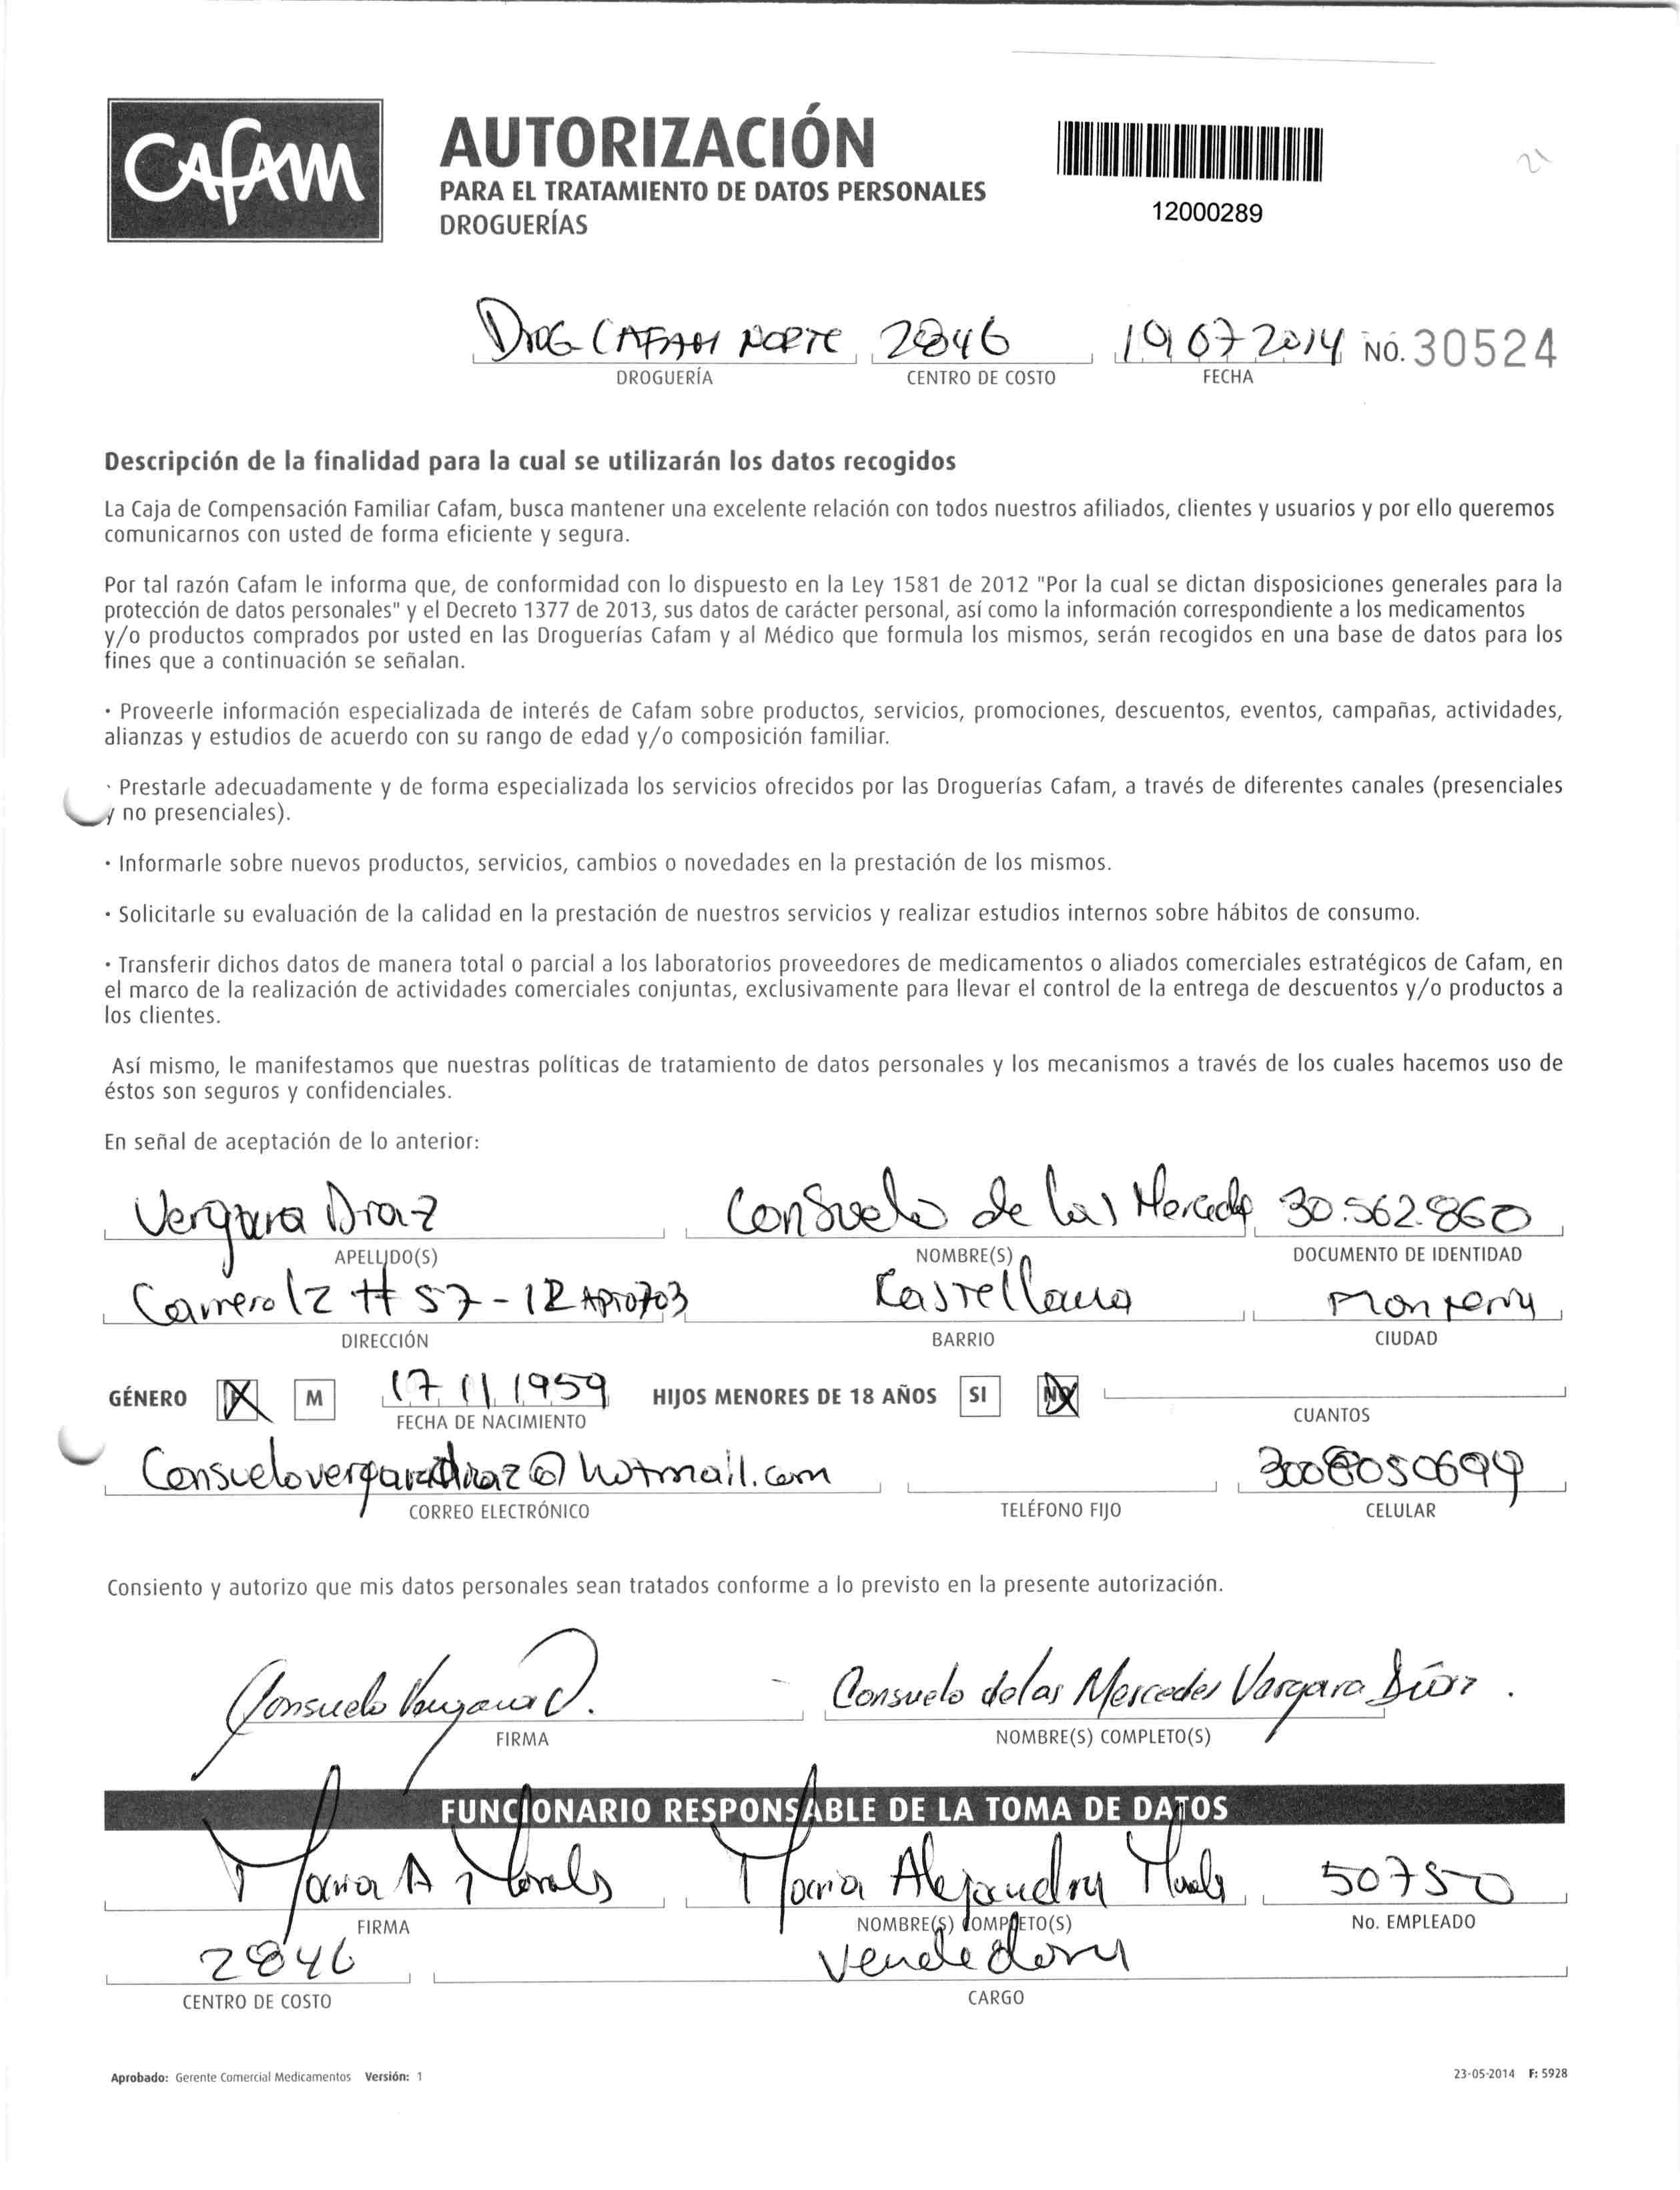 CAFAM
AUTORIZACIÓN
PARA EL TRATAMIENTO DE DATOS PERSONALES
DROGUERÍAS
12000289
21
Drog CAFAM NORTE 2846 19 07 2014 NO. 30524
DROGUERÍA CENTRO DE COSTO FECHA
Descripción de la finalidad para la cual se utilizarán los datos recogidos
La Caja de Compensación Familiar Cafam, busca mantener una excelente relación con todos nuestros afiliados, clientes y usuarios y por ello queremos
comunicarnos con usted de forma eficiente y segura.
Por tal razón Cafam le informa que, de conformidad con lo dispuesto en la Ley 1581 de 2012 "Por la cual se dictan disposiciones generales para la
protección de datos personales" y el Decreto 1377 de 2013, sus datos de carácter personal, así como la información correspondiente a los medicamentos
y/o productos comprados por usted en las Droguerías Cafam y al Médico que formula los mismos, serán recogidos en una base de datos para los
fines que a continuación se señalan.
· Proveerle información especializada de interés de Cafam sobre productos, servicios, promociones, descuentos, eventos, campañas, actividades,
alianzas y estudios de acuerdo con su rango de edad y/o composición familiar.
· Prestarle adecuadamente y de forma especializada los servicios ofrecidos por las Droguerías Cafam, a través de diferentes canales (presenciales
y no presenciales).
· Informarle sobre nuevos productos, servicios, cambios o novedades en la prestación de los mismos.
· Solicitarle su evaluación de la calidad en la prestación de nuestros servicios y realizar estudios internos sobre hábitos de consumo.
· Transferir dichos datos de manera total o parcial a los laboratorios proveedores de medicamentos o aliados comerciales estratégicos de Cafam, en
el marco de la realización de actividades comerciales conjuntas, exclusivamente para llevar el control de la entrega de descuentos y/o productos a
los clientes.
Así mismo, le manifestamos que nuestras políticas de tratamiento de datos personales y los mecanismos a través de los cuales hacemos uso de
éstos son seguros y confidenciales.
En señal de aceptación de lo anterior:
Vergara Diaz Consuelo de las Mercede 30.562.860
APELLIDO(S) NOMBRE(S) DOCUMENTO DE IDENTIDAD
Carrera 12 # 57-12 Apto703 Castellana Monteria
DIRECCIÓN BARRIO CIUDAD
GÉNERO F M 17 11 1959 HIJOS MENORES DE 18 AÑOS SI NO
FECHA DE NACIMIENTO CUANTOS
Consuelovergaradiaz@hotmail.com 3008050699
CORREO ELECTRÓNICO TELÉFONO FIJO CELULAR
Consiento y autorizo que mis datos personales sean tratados conforme a lo previsto en la presente autorización.
Consuelo Vergara D. Consuelo de las Mercedes Vergara Díaz.
FIRMA NOMBRE(S) COMPLETO(S)
FUNCIONARIO RESPONSABLE DE LA TOMA DE DATOS
Maria A Morales Maria Alejandra Morales 50750
FIRMA NOMBRE(S) COMPLETO(S) No. EMPLEADO
2846 Vendedora
CENTRO DE COSTO CARGO
Aprobado: Gerente Comercial Medicamentos Versión: 1 23-05-2014 F: 5928